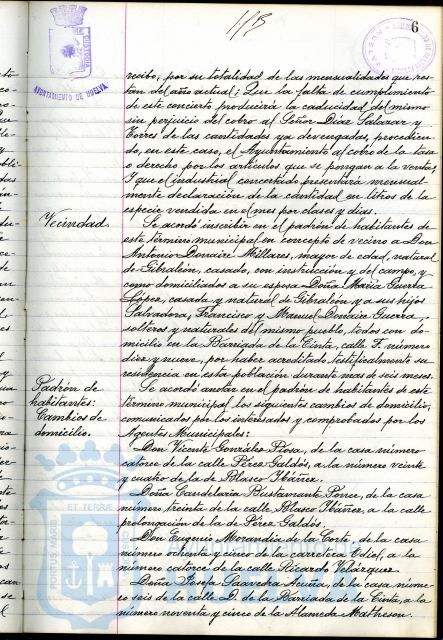 6
AYUNTAMIENTO DE HUELVA
recibo, por su totalidad de las mensualidades que res-
tan del año actual; Que la falta de cumplimiento
de este concierto producirá la caducidad del mismo
sin perjuicio del cobro al Señor Díaz Salazar y
Torres de las cantidades ya devengadas, procedien-
do, en este caso, el Ayuntamiento al cobro de la tasa
o derecho por los artículos que se pongan a la venta;
Y que el industrial concertado presentará mensual-
mente declaración de la cantidad en litros de la
especie vendida en el mes por clases y días.
Vecindad.
Se acordó inscribir en el padrón de habitantes de
este término municipal en concepto de vecino a Don
Antonio Donaire Millares, mayor de edad, natural
de Gibraleón, casado, con instrucción y del campo, y
como domiciliados a su esposa Doña María Guerra
López, casada y natural de Gibraleón y a sus hijos
Salvadora, Francisco y Manuel Donaire Guerra,
solteros y naturales del mismo pueblo, todos con do-
micilio en la Barriada de la Cinta, calle F. número
diez y nueve, por haber acreditado testificalmente su
residencia en esta población durante mas de seis meses.
Padrón de
habitantes:
Cambios de
domicilio.
Se acordó anotar en el padrón de habitantes de este
término municipal los siguientes cambios de domicilio,
comunicados por los interesados y comprobados por los
Agentes Municipales:
Don Vicente González, de la casa número
catorce de la calle Pérez Galdós, a la número veinte
y cuatro de la de Blasco Ibáñez.
Doña Candelaria Bustamante Ponce, de la casa
número treinta de la calle Blasco Ibáñez, a la calle
prolongación de la de Pérez Galdós.
Don Eugenio Morandia de la Corte, de la casa
número ochenta y cinco de la carretera Odiel, a la
número catorce de la calle Ricardo Velázquez.
Doña Josefa Saavedra Acuña, de la casa núme-
ro seis de la calle D. de la Barriada de la Cinta, a la
número noventa y cinco de la Alameda Matheson.
PORTUS MARIS ET TERRAE